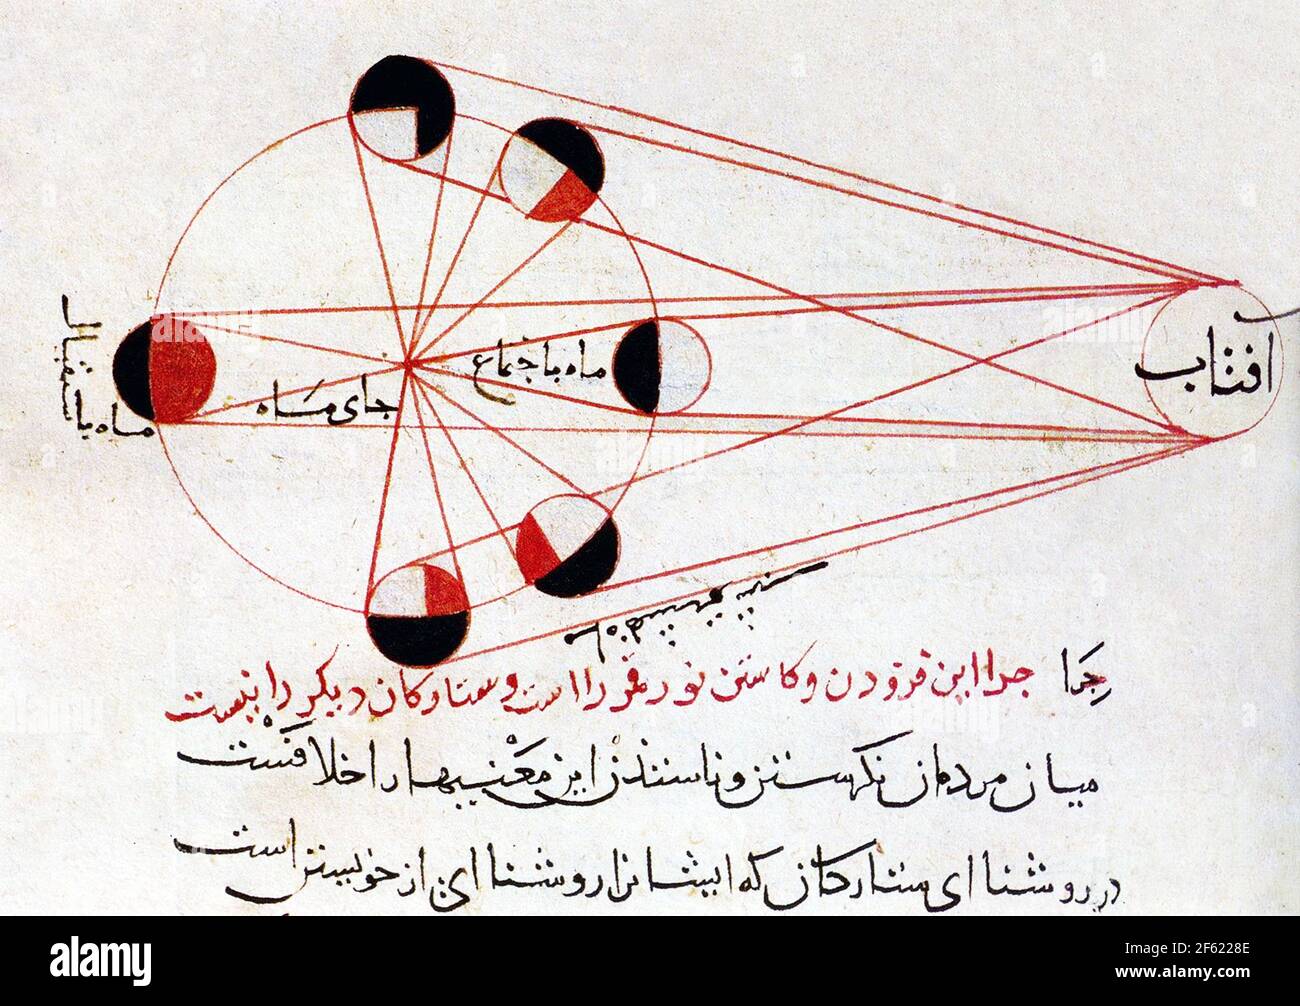 آفتاب
ماه باجتماع
جای ماه
ماه باستقبال
چرا این فزودن و کاستن نور قمر را است و ستارگان دیگر را نیست
میان مردمان نگرستن و ناستدن این معنیها را خلاف است
در روشنای ستارگان که ایشانرا روشنای از خویشتن است
alamy
Image ID: 2F6228E
www.alamy.com